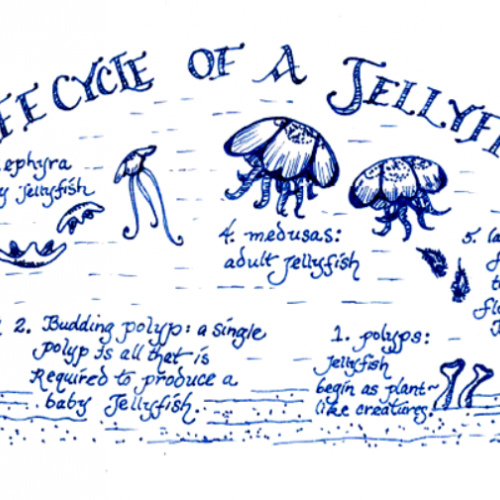 FE CYCLE OF A JELLYF
ephyra
y Jellyfish
4. medusas:
adult Jellyfish
5. la
2. Budding polyp: a single
polyp is all that is
Required to produce a
baby Jellyfish.
1. polyps:
Jellyfish
begin as plant~
like creatures.